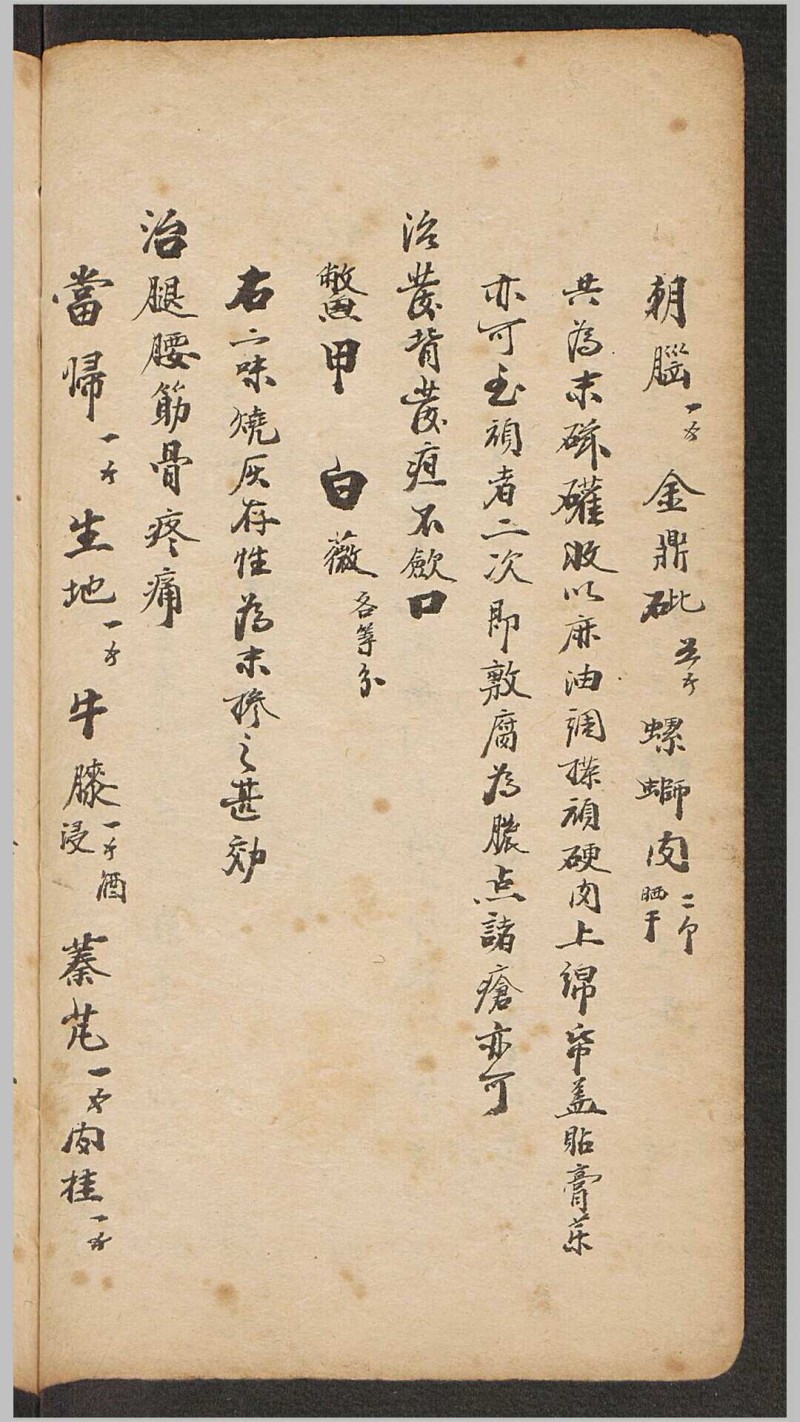 朝腦一分 金鼎砒五分 螺螄肉二个晒干
共為末磁礶收以麻油調搽頑硬肉上綿帋盖貼膏藥
亦可至頑者二次即敷腐為膿点諸瘡亦可
治發背發疽不歛口
鱉甲 白薇各等分
右二味燒灰存性為末摻之甚効
治腿腰筋骨疼痛
當帰一斤 生地一斤 牛膝一斤酒浸 蓁艽一分 肉桂一斤